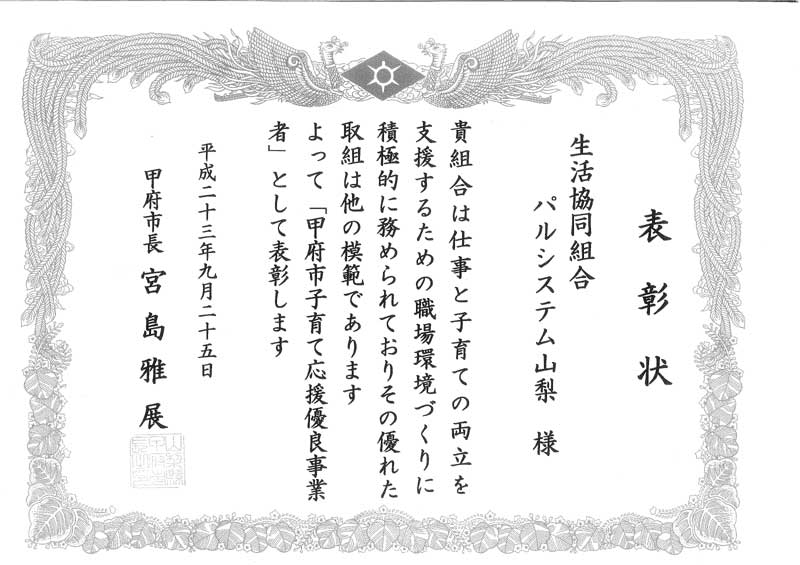 表彰状
生活協同組合
パルシステム山梨 様
貴組合は仕事と子育ての両立を
支援するための職場環境づくりに
積極的に務められておりその優れた
取組は他の模範であります
よって「甲府市子育て応援優良事業
者」として表彰します
平成二十三年九月二十五日
甲府市長 宮島雅展